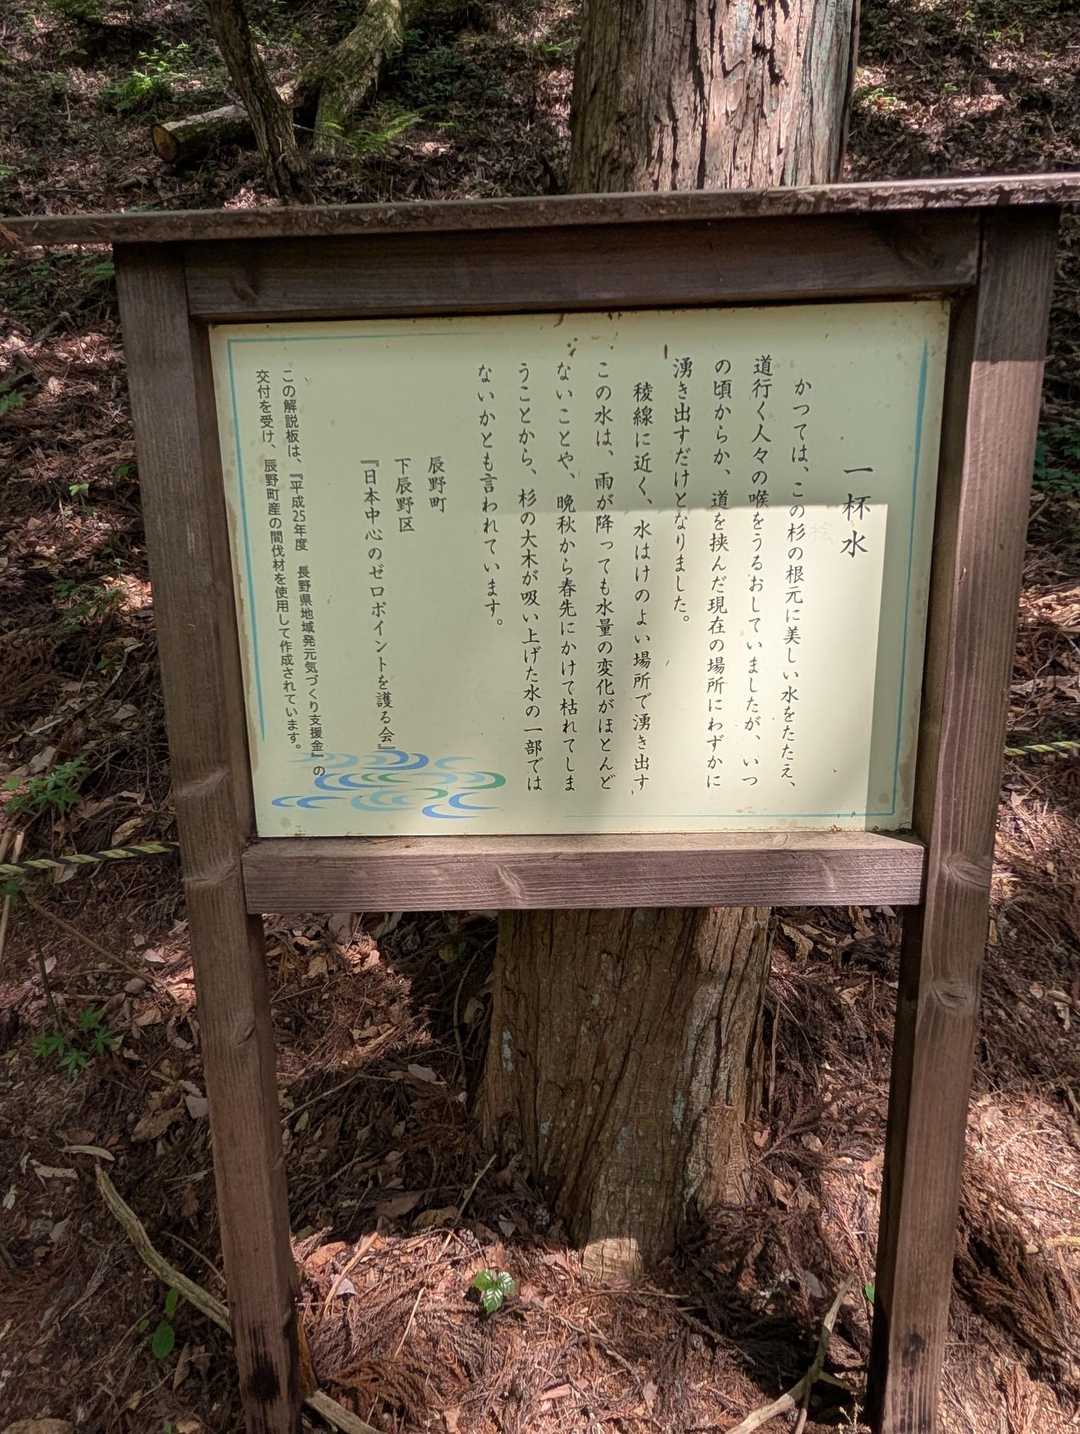 一杯水
かつては、この杉の根元に美しい水をたたえ、
道行く人々の喉をうるおしていましたが、いつ
の頃からか、道を挟んだ現在の場所にわずかに
湧き出すだけとなりました。
稜線に近く、水はけのよい場所で湧き出す
この水は、雨が降っても水量の変化がほとんど
ないことや、晩秋から春先にかけて枯れてしま
うことから、杉の大木が吸い上げた水の一部では
ないかとも言われています。
辰野町
下辰野区
『日本中心のゼロポイントを護る会』
この解説板は、『平成25年度　長野県地域発元気づくり支援金』の
交付を受け、辰野町産の間伐材を使用して作成されています。